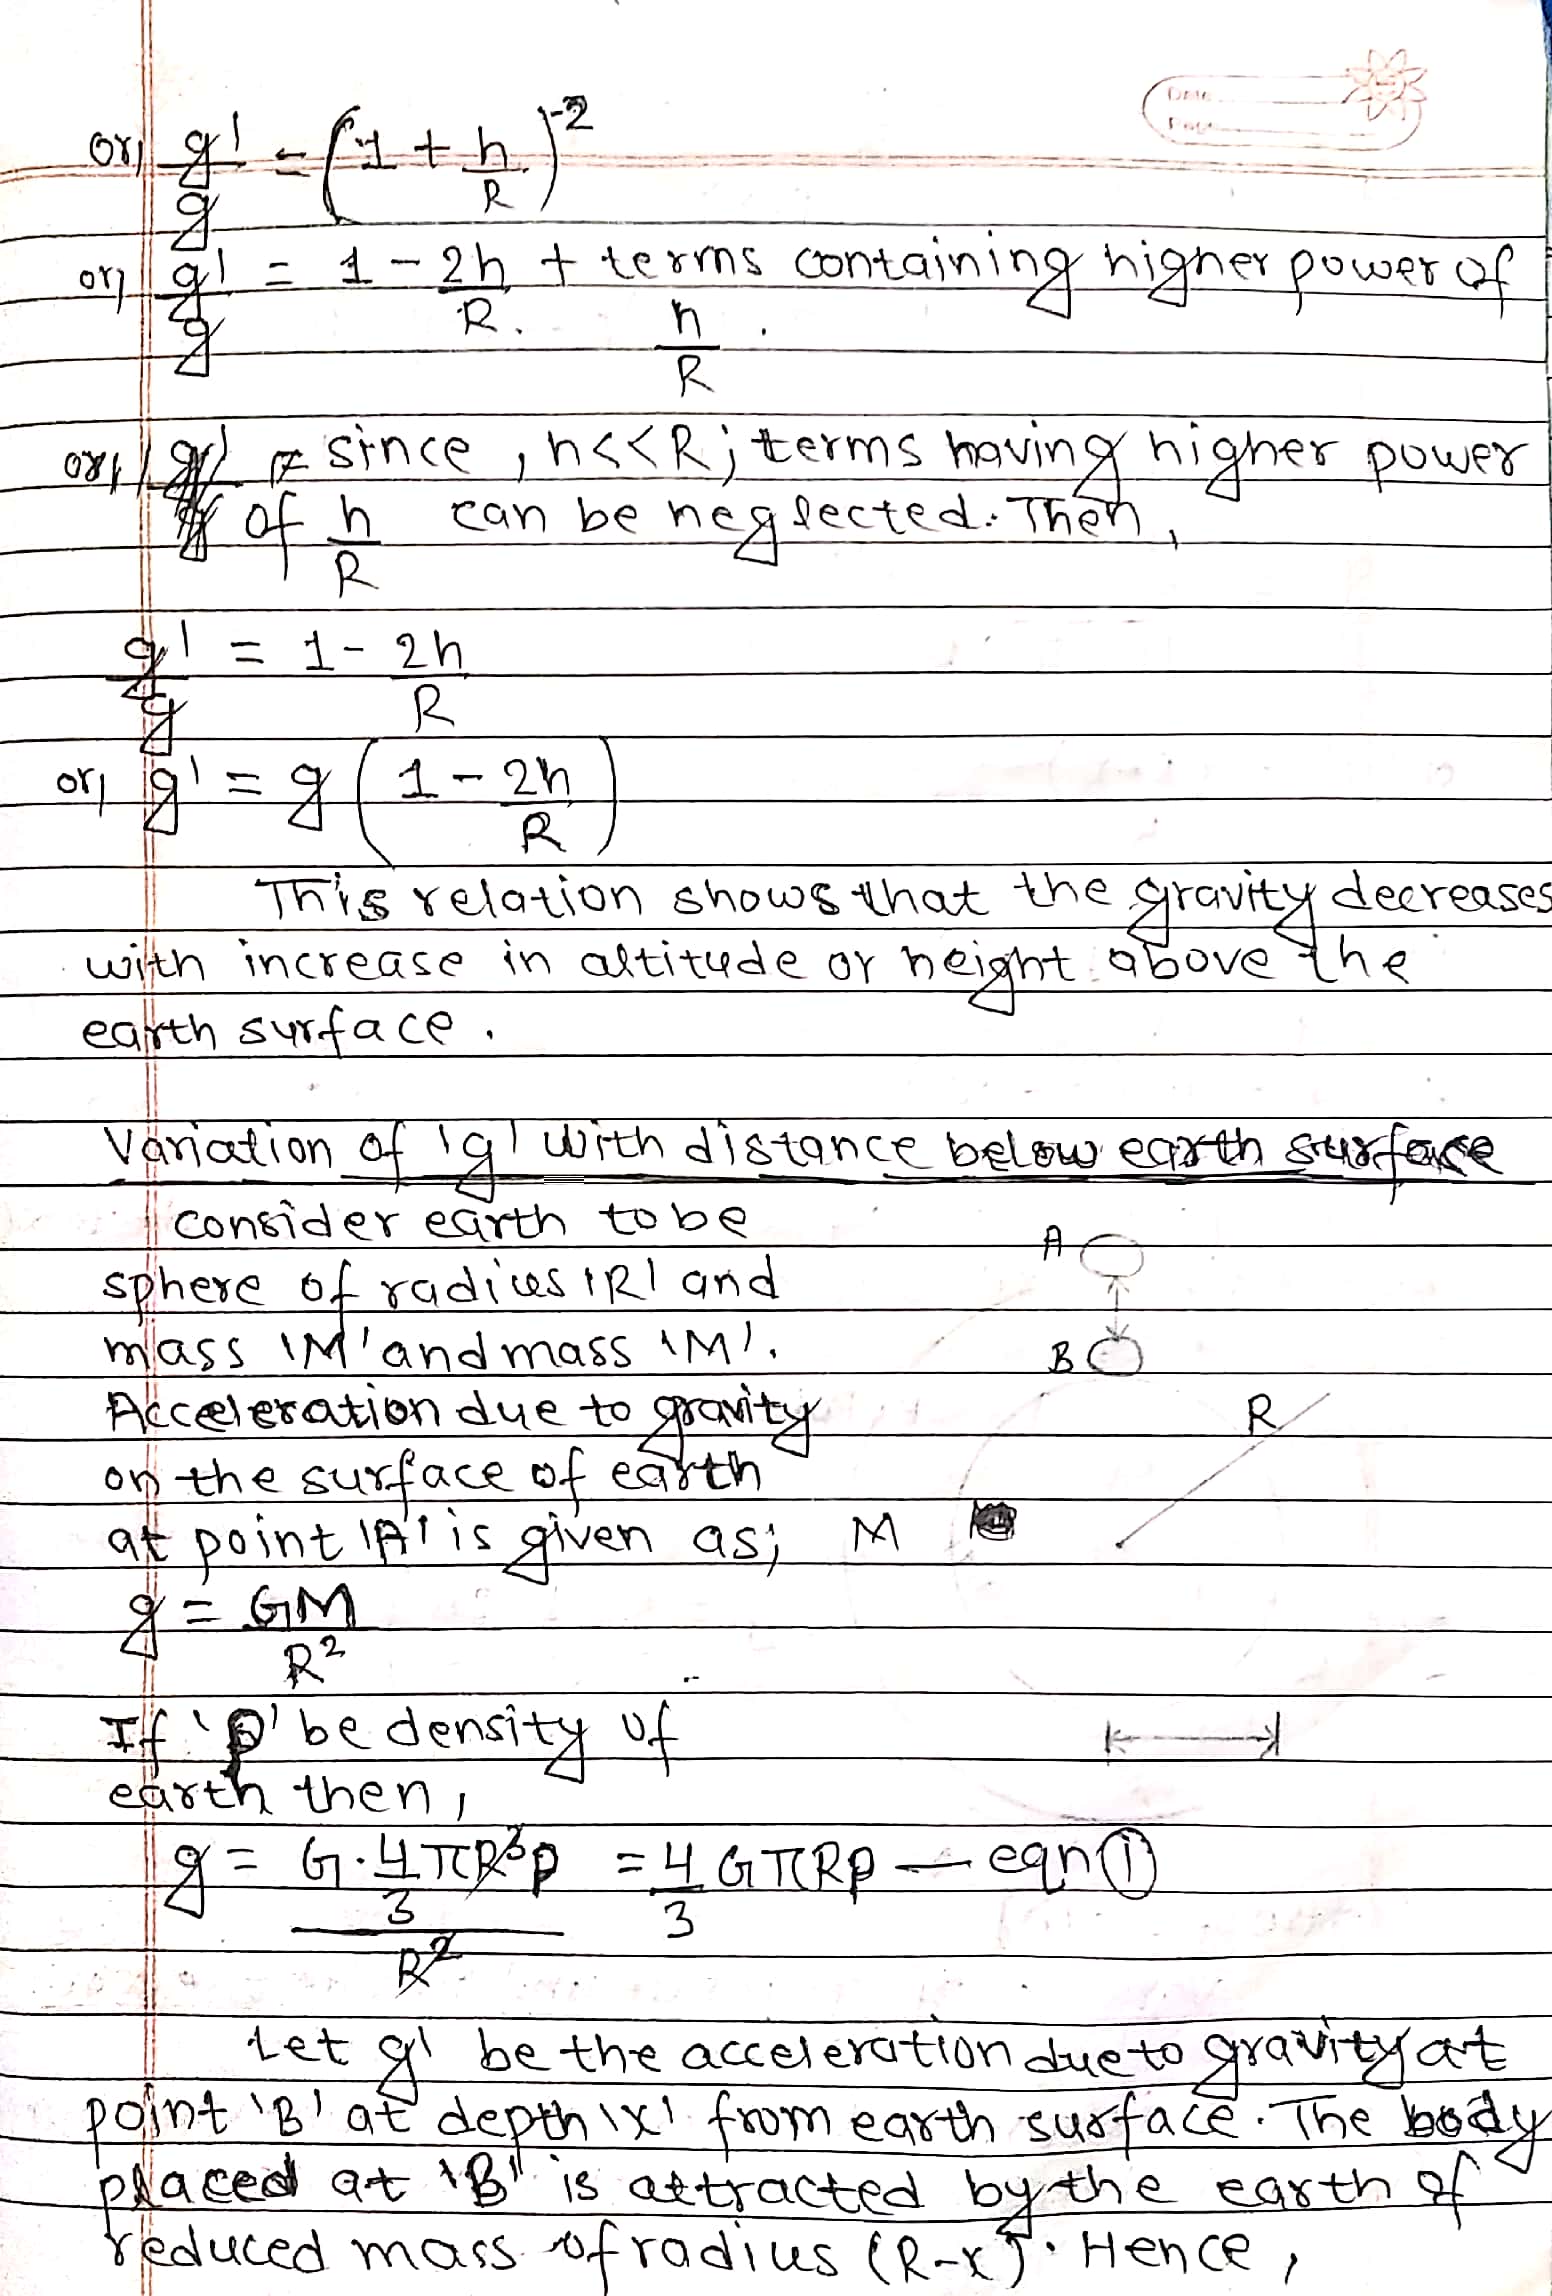 Date
Page
or, g'/g = (1 + h/R)^-2
or, g'/g = 1 - 2h/R + terms containing higher power of
h/R.
or, since, h<<R; terms having higher power
of h/R can be neglected. Then,
g'/g = 1 - 2h/R
or, g' = g (1 - 2h/R)
This relation shows that the gravity decreases
with increase in altitude or height above the
earth surface.
Variation of 'g' with distance below earth surface
consider earth to be
sphere of radius 'R' and
mass 'M' and mass 'M'.
Acceleration due to gravity
on the surface of earth
at point 'A' is given as;
g = GM/R²
If 'ρ' be density of
earth then,
g = G·4/3 πR³ρ / R² = 4/3 GπRρ — eqn ①
Let g' be the acceleration due to gravity at
point 'B' at depth 'x' from earth surface. The body
placed at 'B' is attracted by the earth of
reduced mass of radius (R-x). Hence,
A
B
R
M